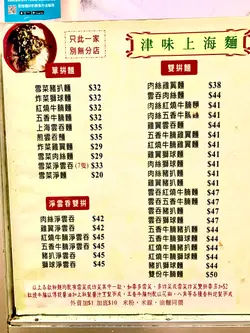 只此一家
別無分店
津味上海麵
單拼麵
雪菜豬扒麵 $32
炸菜獅球麵 $32
紅燒牛腩麵 $32
五香牛腩麵 $32
上海雲吞麵 $35
煎雲吞麵 $35
雪菜雞翼麵 $29
雪菜肉絲麵 $29
雪菜淨雲吞(7隻) $33
雪菜淨麵 $20
淨雲吞雙拼
肉絲淨雲吞 $42
雞翼淨雲吞 $42
五香牛腩淨雲吞 $45
紅燒牛腩淨雲吞 $45
豬扒淨雲吞 $45
獅球淨雲吞 $45
雙拼麵
肉絲雞翼麵 $38
雲吞肉絲麵 $41
肉絲紅燒牛腩麵 $41
肉絲五香牛腩麵 $41
雞翼雲吞麵 $44
五香牛腩雞翼麵 $41
紅燒牛腩雞翼麵 $41
雞翼獅球麵 $41
肉絲獅球麵 $41
肉絲豬扒麵 $41
雞翼豬扒麵 $41
雲吞紅燒牛腩麵 $47
雲吞五香牛腩麵 $47
雲吞獅球麵 $47
雲吞豬扒麵 $47
五香牛腩豬扒麵 $44
紅燒牛腩豬扒麵 $44
五香牛腩獅球麵 $44
紅燒牛腩獅球麵 $44
豬扒獅球麵 $44
雙份牛腩麵 $50
外賣加$1 加底$10 米粉·米線·油麵同價